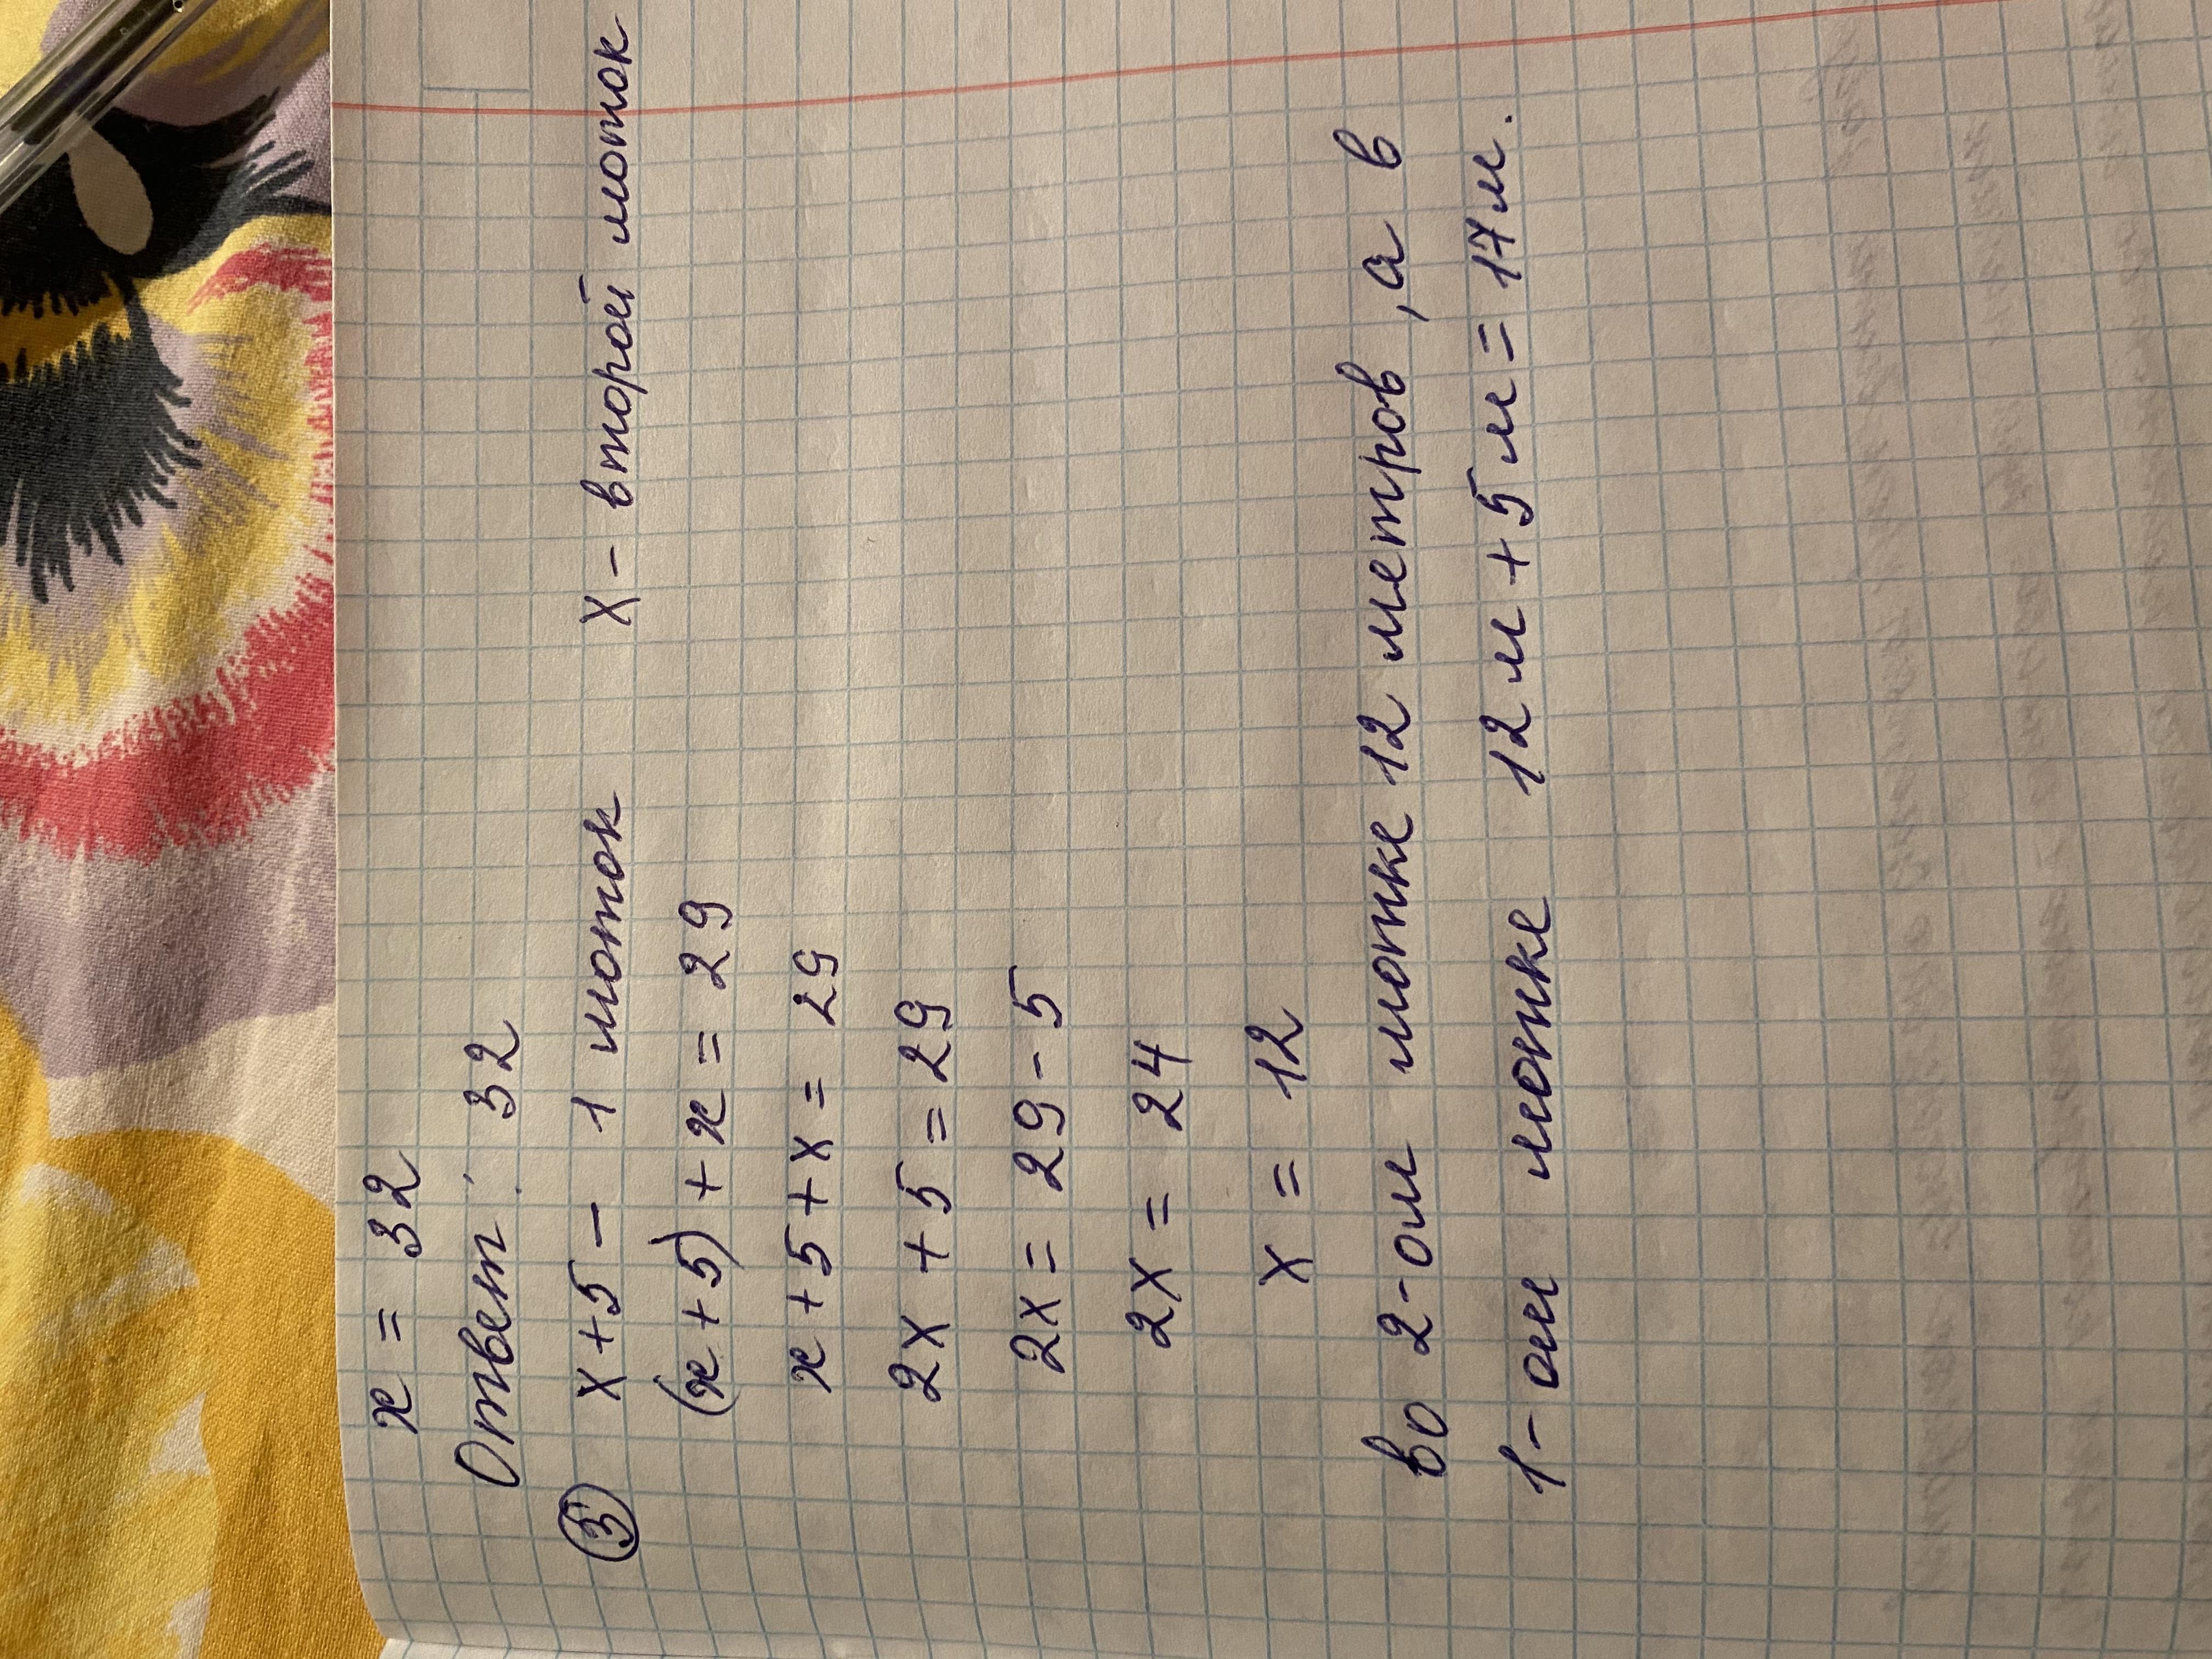 x = 32
Ответ: 32
③ x + 5 – 1 моток x – второй моток
(x + 5) + x = 29
x + 5 + x = 29
2x + 5 = 29
2x = 29 - 5
2x = 24
x = 12
во 2-ом мотке 12 метров, а в
1-ом мотке 12 м + 5 м = 17 м.